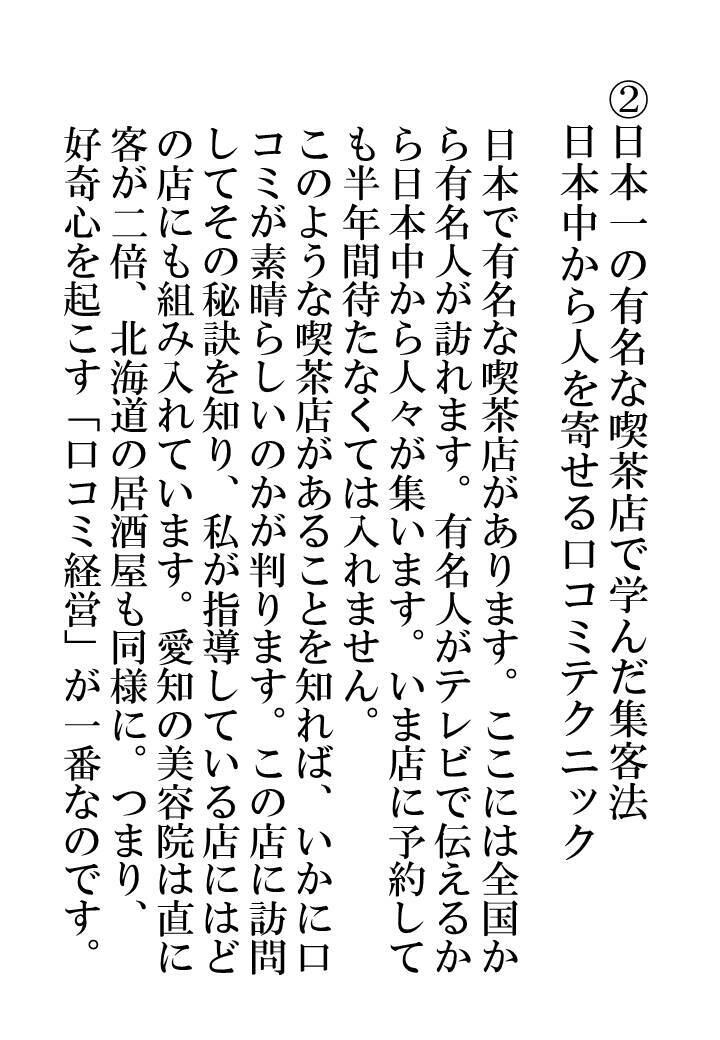 ②日本一の有名な喫茶店で学んだ集客法
日本中から人を寄せる口コミテクニック
日本で有名な喫茶店があります。ここには全国か
ら有名人が訪れます。有名人がテレビで伝えるか
ら日本中から人々が集います。いま店に予約して
も半年間待たなくては入れません。
このような喫茶店があることを知れば、いかに口
コミが素晴らしいのかが判ります。この店に訪問
してその秘訣を知り、私が指導している店にはど
の店にも組み入れています。愛知の美容院は直に
客が二倍、北海道の居酒屋も同様に。つまり、
好奇心を起こす「口コミ経営」が一番なのです。